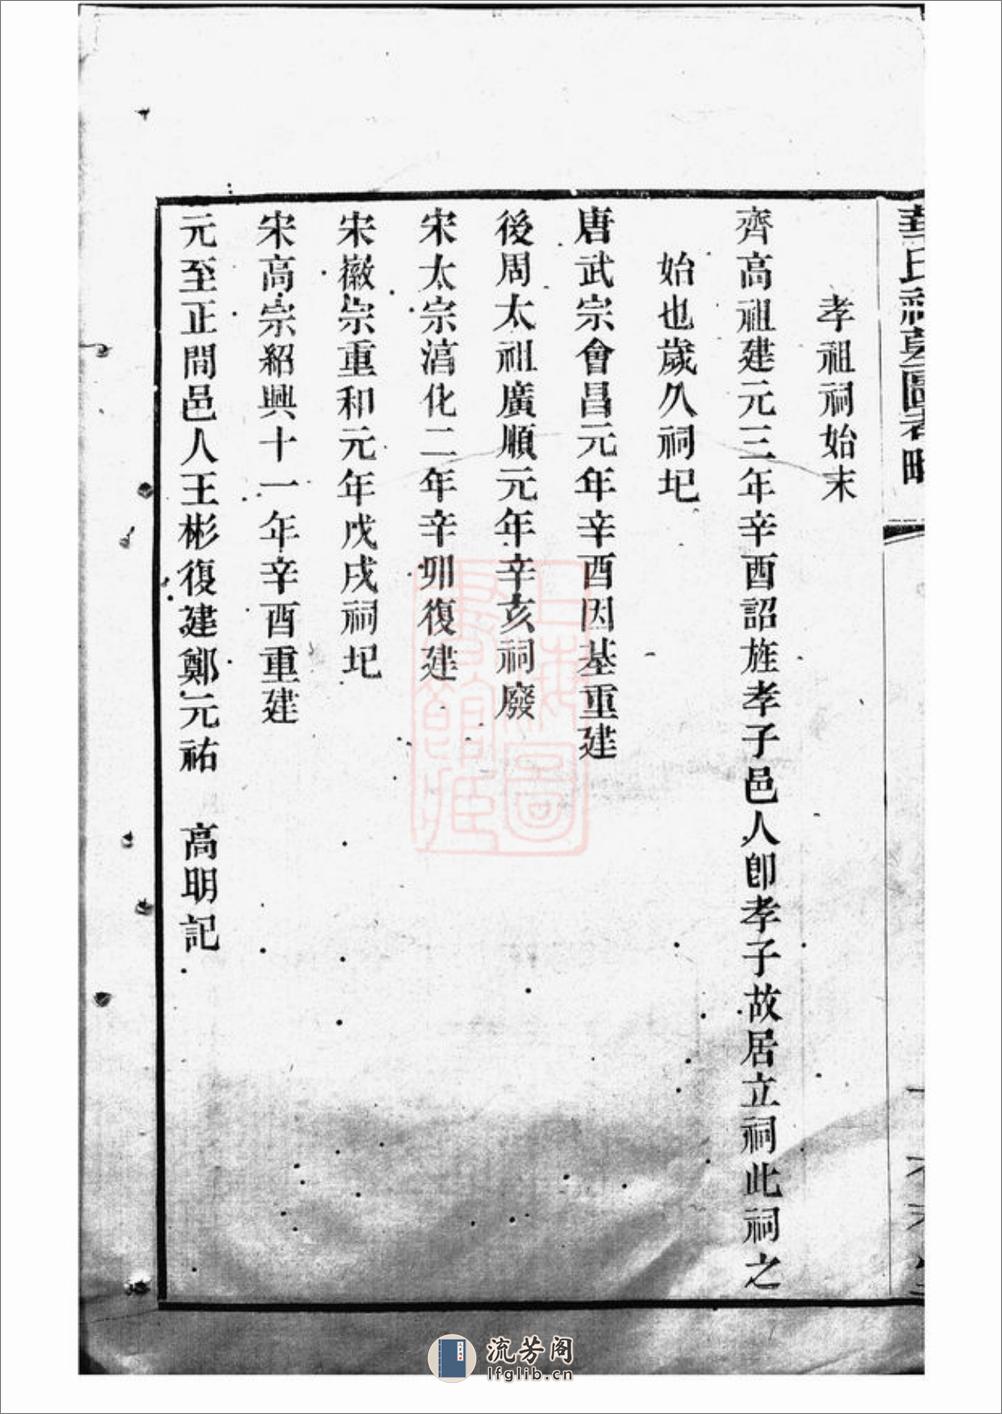 華氏祠墓圖考略
孝祖祠始末
齊高祖建元三年辛酉詔旌孝子邑人卽孝子故居立祠此祠之
始也歲久祠圮
唐武宗會昌元年辛酉因基重建
後周太祖廣順元年辛亥祠廢
宋太宗淳化二年辛卯復建
宋徽宗重和元年戊戌祠圮
宋高宗紹興十一年辛酉重建
元至正間邑人王彬復建鄭元祐 高明記
上海圖
書館藏
流芳阁
lfglib.cn